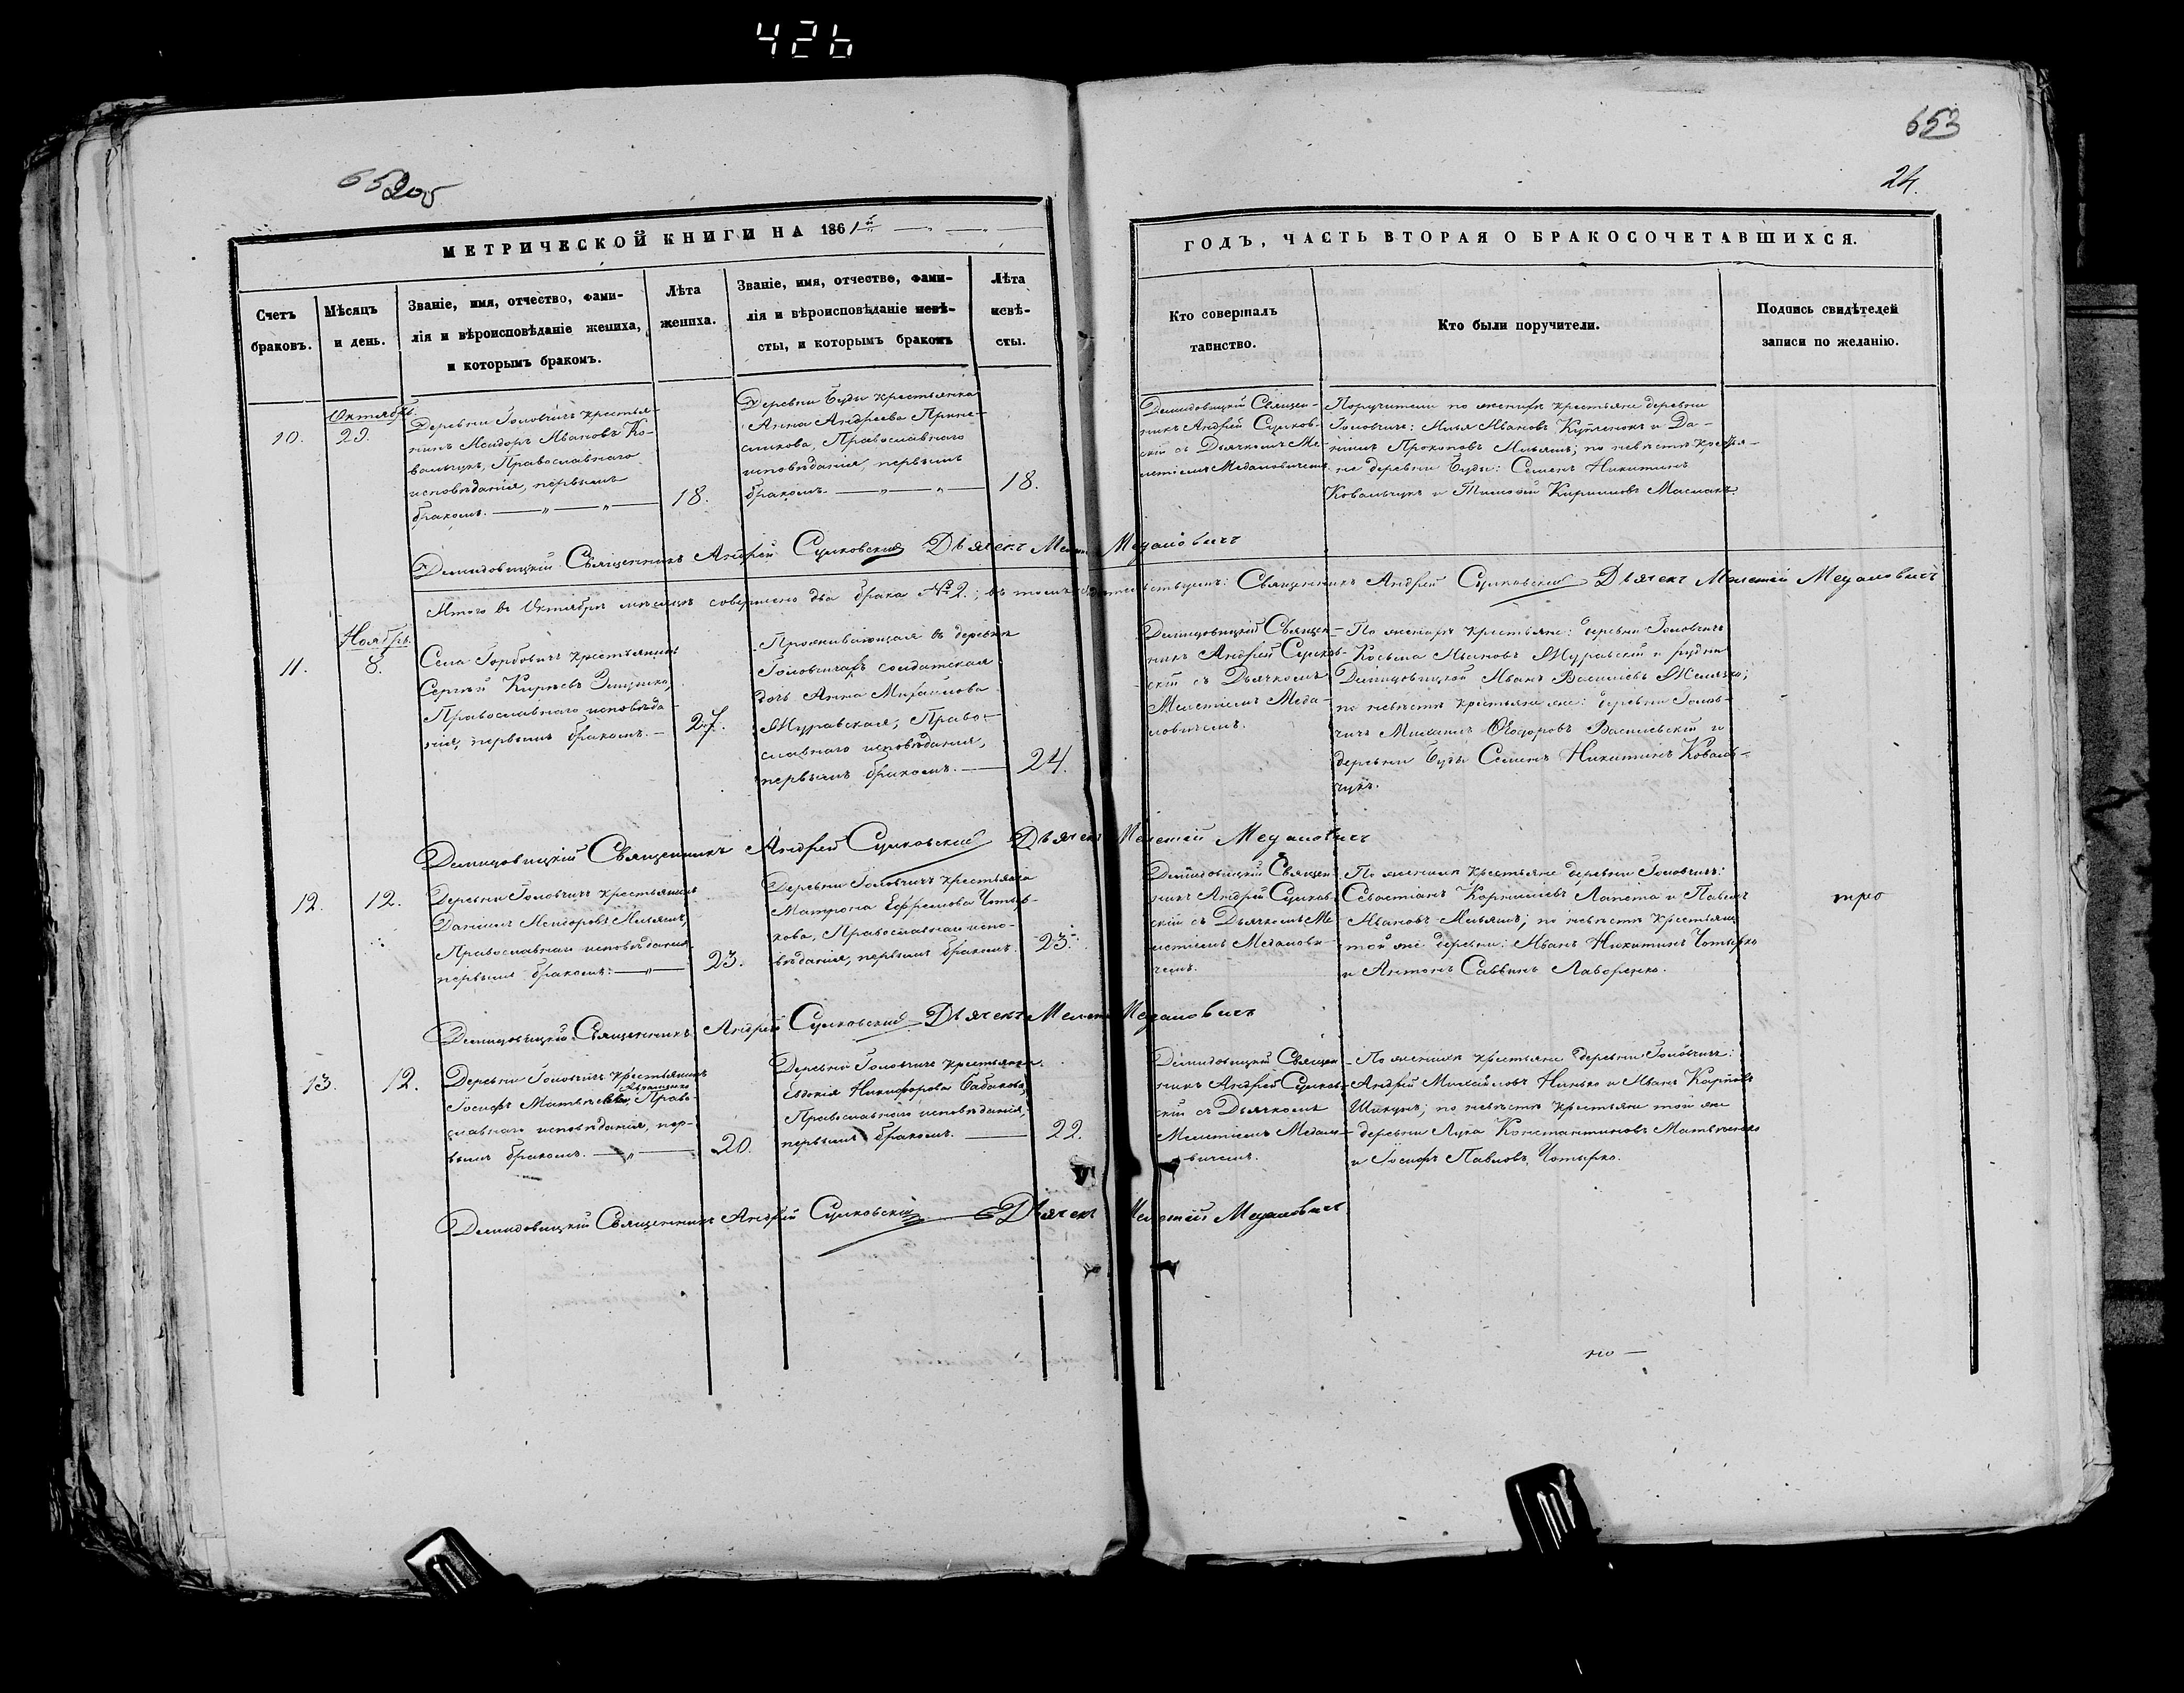 426
652об
653
24.
МЕТРИЧЕСКОЙ КНИГИ НА 1861й
ГОДЪ, ЧАСТЬ ВТОРАЯ О БРАКОСОЧЕТАВШИХСЯ.
Счетъ
браковъ.
Мѣсяцъ
и день.
Званіе, имя, отчество, фами-
лія и вѣроисповѣданіе жениха,
и которымъ бракомъ.
Лѣта
жениха.
Званіе, имя, отчество, фами-
лія и вѣроисповѣданіе невѣ-
сты, и которымъ бракомъ
Лѣта
невѣ-
сты.
Кто совершалъ
таинство.
Кто были поручители.
Подпись свидѣтелей
записи по желанію.
10.
Октябрь.
29.
Деревни Головчичъ крестья-
нинъ Исидоръ Ивановъ Ко-
вальчукъ, Православнаго
исповѣданія, первымъ
бракомъ.
18.
Деревни Буды крестьянка
Анна Андреева
Православнаго
исповѣданія, первымъ
бракомъ.
18.
Демидовицкій Священ-
никъ Андрей Сулков-
скій съ Дьячкомъ Ме-
летіемъ Медановичемъ
Поручители по женихѣ крестьяне деревни
Головчичъ: Илья Ивановъ и Да-
ніилъ Прокоповъ Ильяшъ; по невѣстѣ крестья-
не деревни Буды: Семенъ Никитинъ
Ковальчукъ и Тимофей Кириловъ Масмакъ
Демидовицкій Священникъ Андрей Сулковскій Дьячекъ Мелетій Медановичъ
Итого въ Октябрѣ мѣсяцѣ совершено два брака № 2.; въ томъ свидѣтельствуемъ: Священникъ Андрей Сулковскій Дьячекъ Мелетій Медановичъ
11.
Ноябрь.
8.
Села Горбовичъ крестьянинъ
Сергѣй Кирѣевъ
Православнаго исповѣда-
нія, первымъ бракомъ.
27.
Проживающая въ деревнѣ
Головчичахъ солдатская
дочь Анна Михайлова
Журавская, Право-
славнаго исповѣданія,
первымъ бракомъ.
24.
Демидовицкій Священ-
никъ Андрей Сулков-
скій съ Дьячкомъ
Мелетіемъ Меда-
новичемъ.
По женихѣ крестьяне: деревни Головчичъ
Косьма Ивановъ Журавскій и рудни
Демидовицкой Иванъ Василіевъ
по невѣстѣ крестьяне же: деревни Голов-
чичъ Михаилъ Ѳеодоровъ Василевскій и
деревни Буды Семенъ Никитинъ Коваль-
чукъ.
Демидовицкій Священникъ Андрей Сулковскій Дьячекъ Мелетій Медановичъ
12.
12.
Деревни Головчичъ крестьянинъ
Даніилъ Исидоровъ Ильяшъ,
Православнаго исповѣданія
первымъ бракомъ:
23.
Деревни Головчичъ крестьянка
Матрона Ефремова Чотыр-
кова, Православнаго испо-
вѣданія, первымъ бракомъ.
23.
Демидовицкій Священ-
никъ Андрей Сулков-
скій съ Дьячкомъ Ме-
летіемъ Меданови-
чемъ.
По женихѣ крестьяне деревни Головчичъ:
Севастіанъ Корниліевъ Лапета и Павелъ
Ивановъ Ильяшъ; по невѣстѣ крестьяне
той же деревни: Иванъ Никитинъ Чотырко
и Антонъ Саввинъ Лавренко.
Демидовицкій Священникъ Андрей Сулковскій Дьячекъ Мелетій Медановичъ
13.
12.
Деревни Головчичъ крестьянинъ
Іосифъ Матвѣевъ Авраменко, Право-
славнаго исповѣданія, пер-
вымъ бракомъ.
20.
Деревни Головчичъ крестьянка
Евдокія Никифорова Бабакова,
Православнаго исповѣданія,
первымъ бракомъ.
22.
Демидовицкій Священ-
никъ Андрей Сулков-
скій съ Дьячкомъ
Мелетіемъ Медано-
вичемъ.
По женихѣ крестьяне деревни Головчичъ:
Андрей Михайловъ и Иванъ Карповъ
Шикунъ; по невѣстѣ крестьяне той же
деревни Лука Константиновъ Матвѣенко
и Іосифъ Павловъ Чотырко.
Демидовицкій Священникъ Андрей Сулковскій Дьячекъ Мелетій Медановичъ